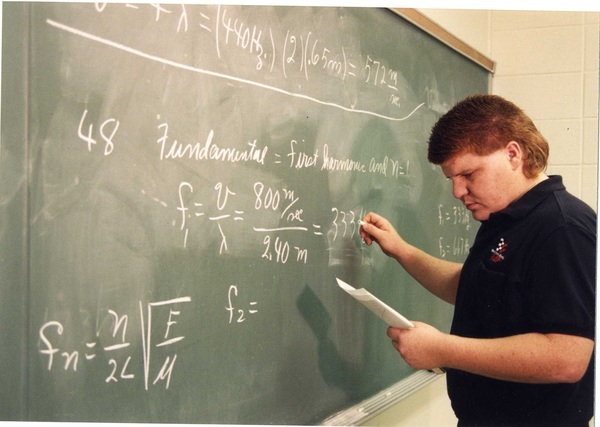 = (440Hz) (2) (.65m) = 572 m/sec.
48 Fundamental = first harmonic and n=1
f₁ = v/λ = 800 m/sec / 2.40 m = 333
f₂ =
fₙ = n/2L √F/μ
f₁ =
f₂ =